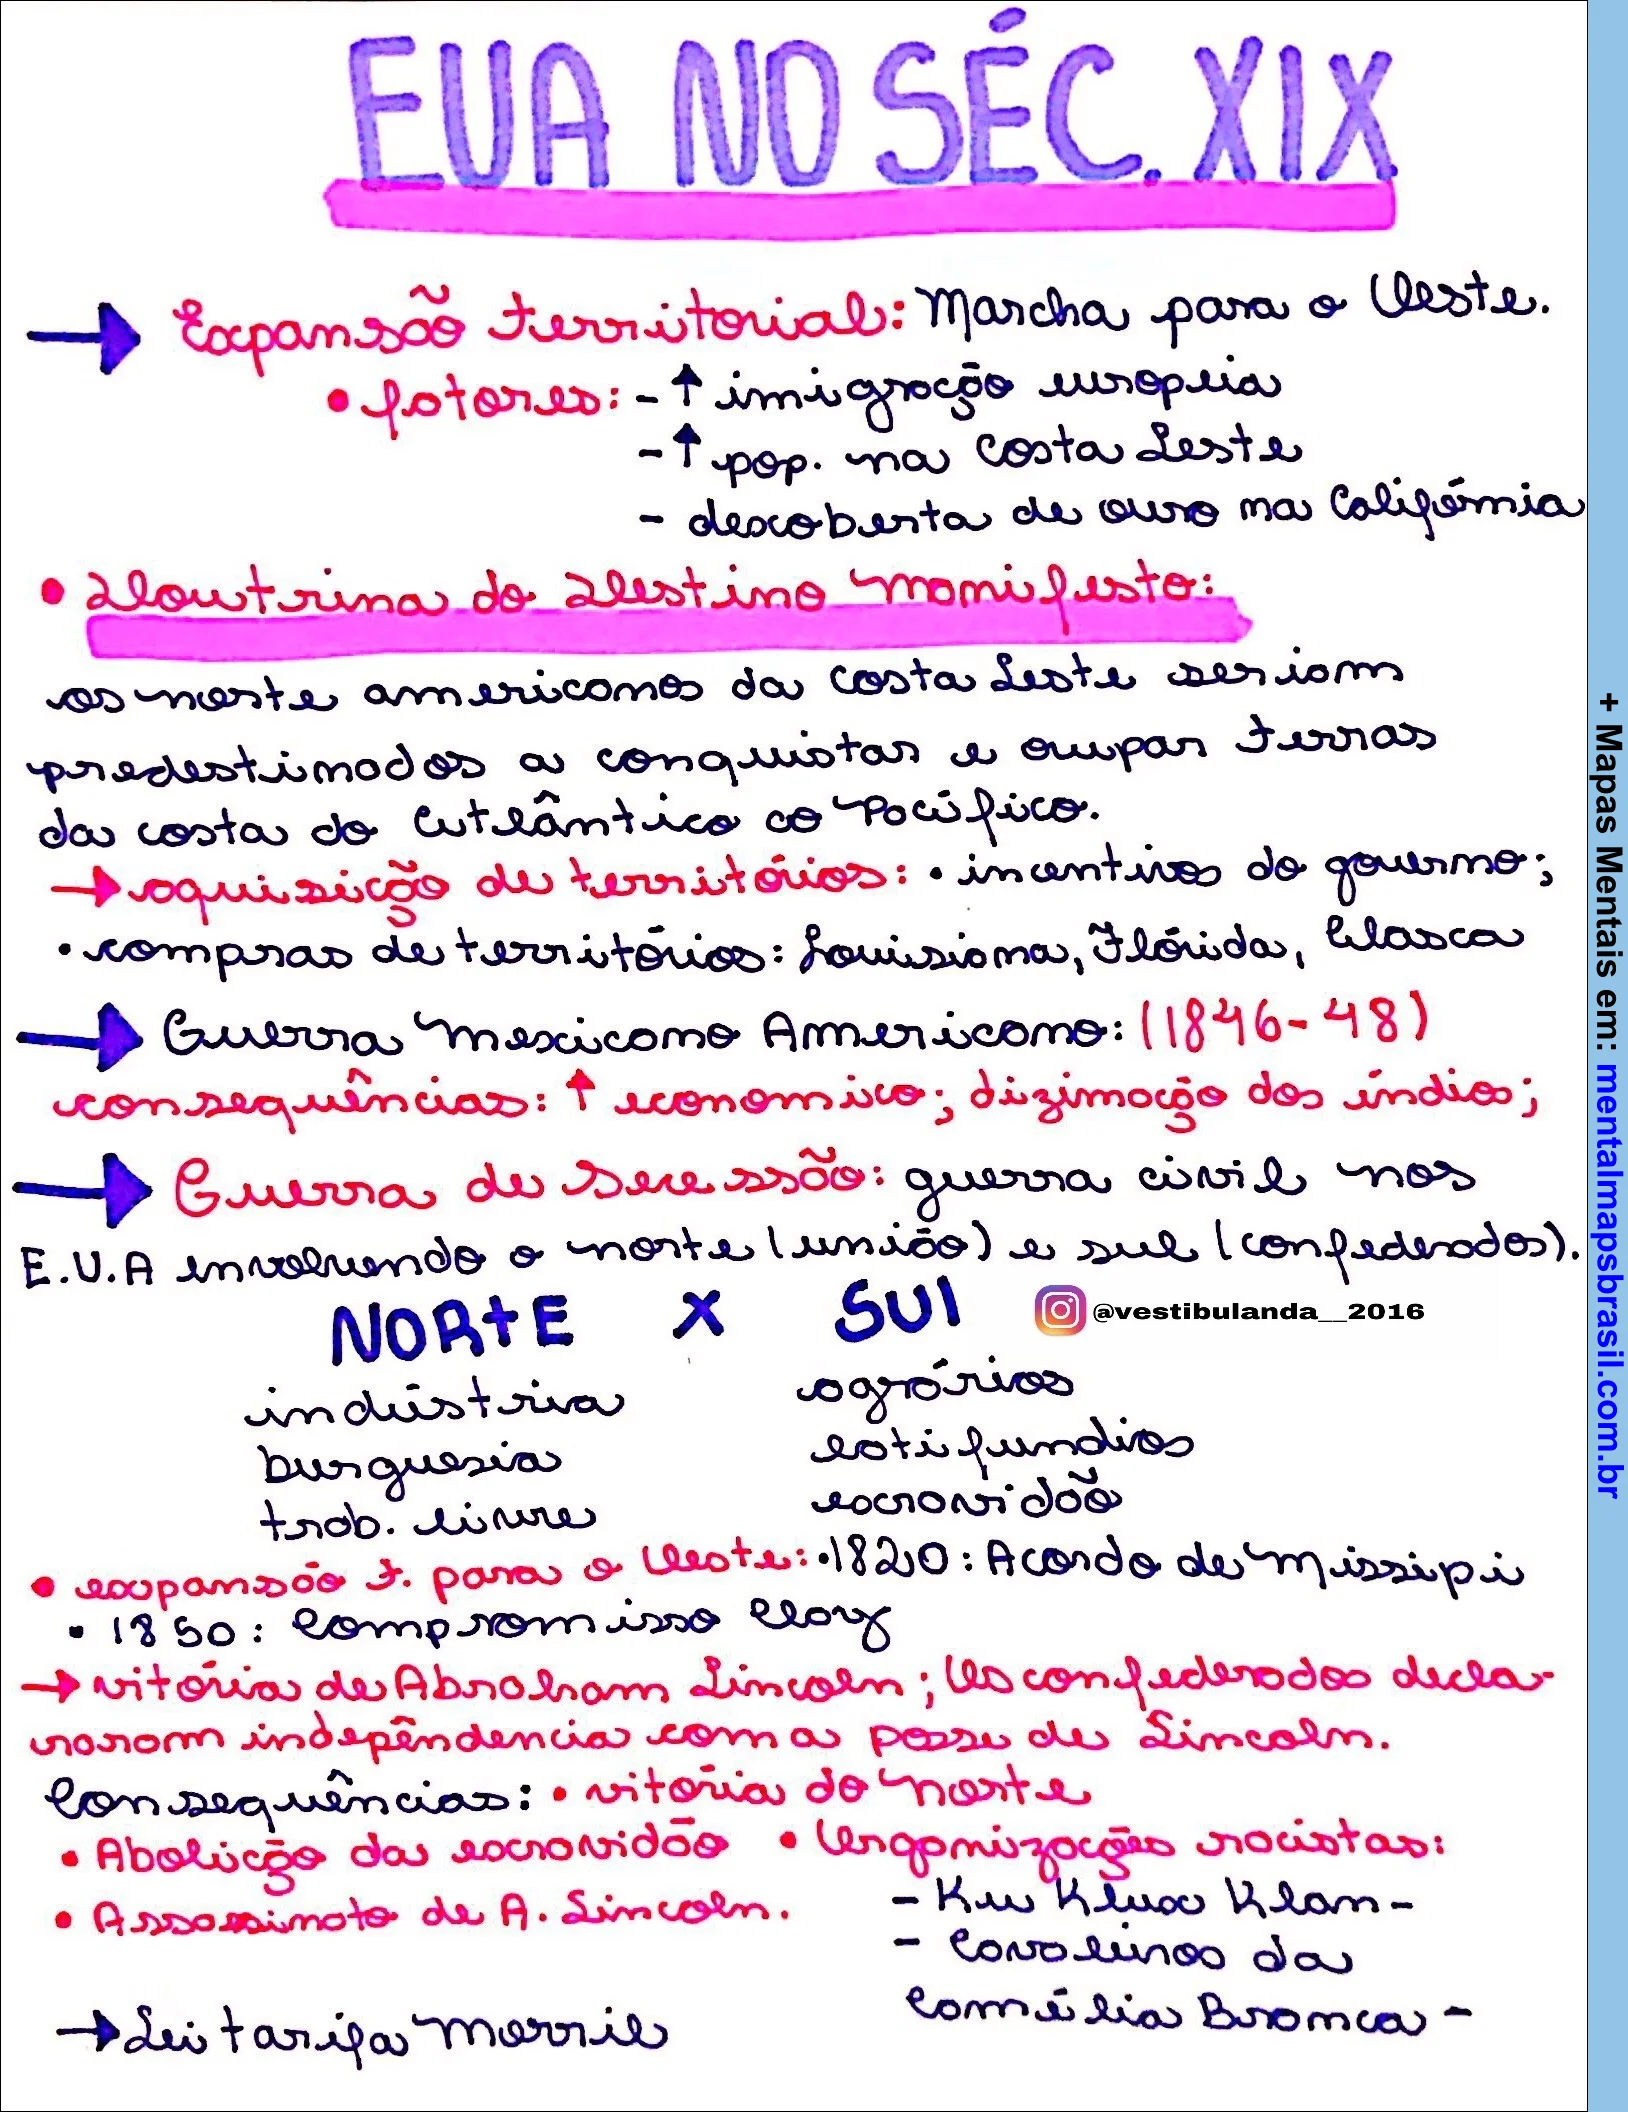 EUA NO SÉC. XIX
→ Expansão territorial: Marcha para o Oeste.
• fatores: - ↑ imigração europeia
- ↑ pop. na Costa Leste
- descoberta de ouro na Califórnia
• Doutrina do Destino Manifesto:
os norte americanos da costa Leste seriam
predestinados a conquistar e ocupar terras
da costa do Atlântico ao Pacífico.
→ aquisição de territórios: • incentivos do governo;
• compras de territórios: Louisiana, Flórida, Alasca
→ Guerra Mexicano Americano: (1846-48)
consequências: ↑ economico; dizimação dos índios;
→ Guerra de Secessão: guerra civil nos
E.U.A envolvendo o norte (união) e sul (confederados).
NORTE X SUl
@vestibulanda__2016
indústria agrários
burguesia latifundios
trab. livre escravidão
• expansão t. para o Oeste: • 1820: Acordo de Missipi
• 1850: Compromisso Clay
→ vitória de Abraham Lincoln; Os confederados decla-
raram indepêndencia com a posse de Lincoln.
Consequências: • vitória do Norte
• Abolição da escravidão • Organizações racistas:
• Assassinato de A. Lincoln. - Ku Klux Klan -
- Cavaleiros da
Camélia Branca -
→ Lei tarifa Morril
+ Mapas Mentais em: mentalmapsbrasil.com.br